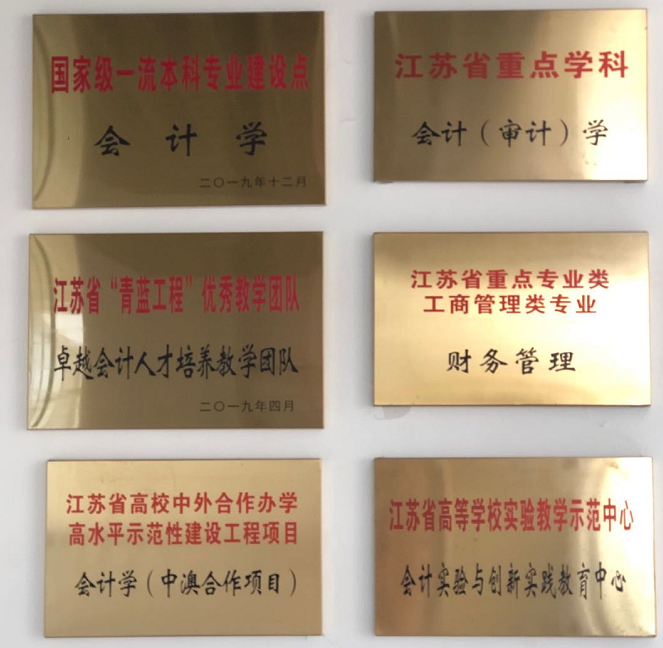 国家级一流本科专业建设点
会计学
二〇一九年十二月
江苏省重点学科
会计（审计）学
江苏省“青蓝工程”优秀教学团队
卓越会计人才培养教学团队
二〇一九年四月
江苏省重点专业类
工商管理类专业
财务管理
江苏省高校中外合作办学
高水平示范性建设工程项目
会计学（中澳合作项目）
江苏省高等学校实验教学示范中心
会计实验与创新实践教育中心